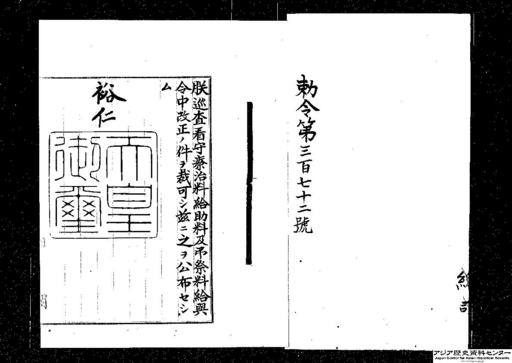 勅令第三百七十二號
朕巡査看守療治料給助料及弔祭料給與
令中改正ノ件ヲ裁可シ茲ニ之ヲ公布セシ
ム
裕仁
天皇
御璽
アジア歴史資料センター
Japan Center for Asian Historical Records